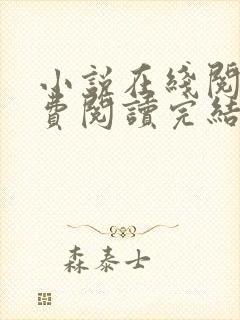 小說在綫閱
費閱讀完結
森泰士